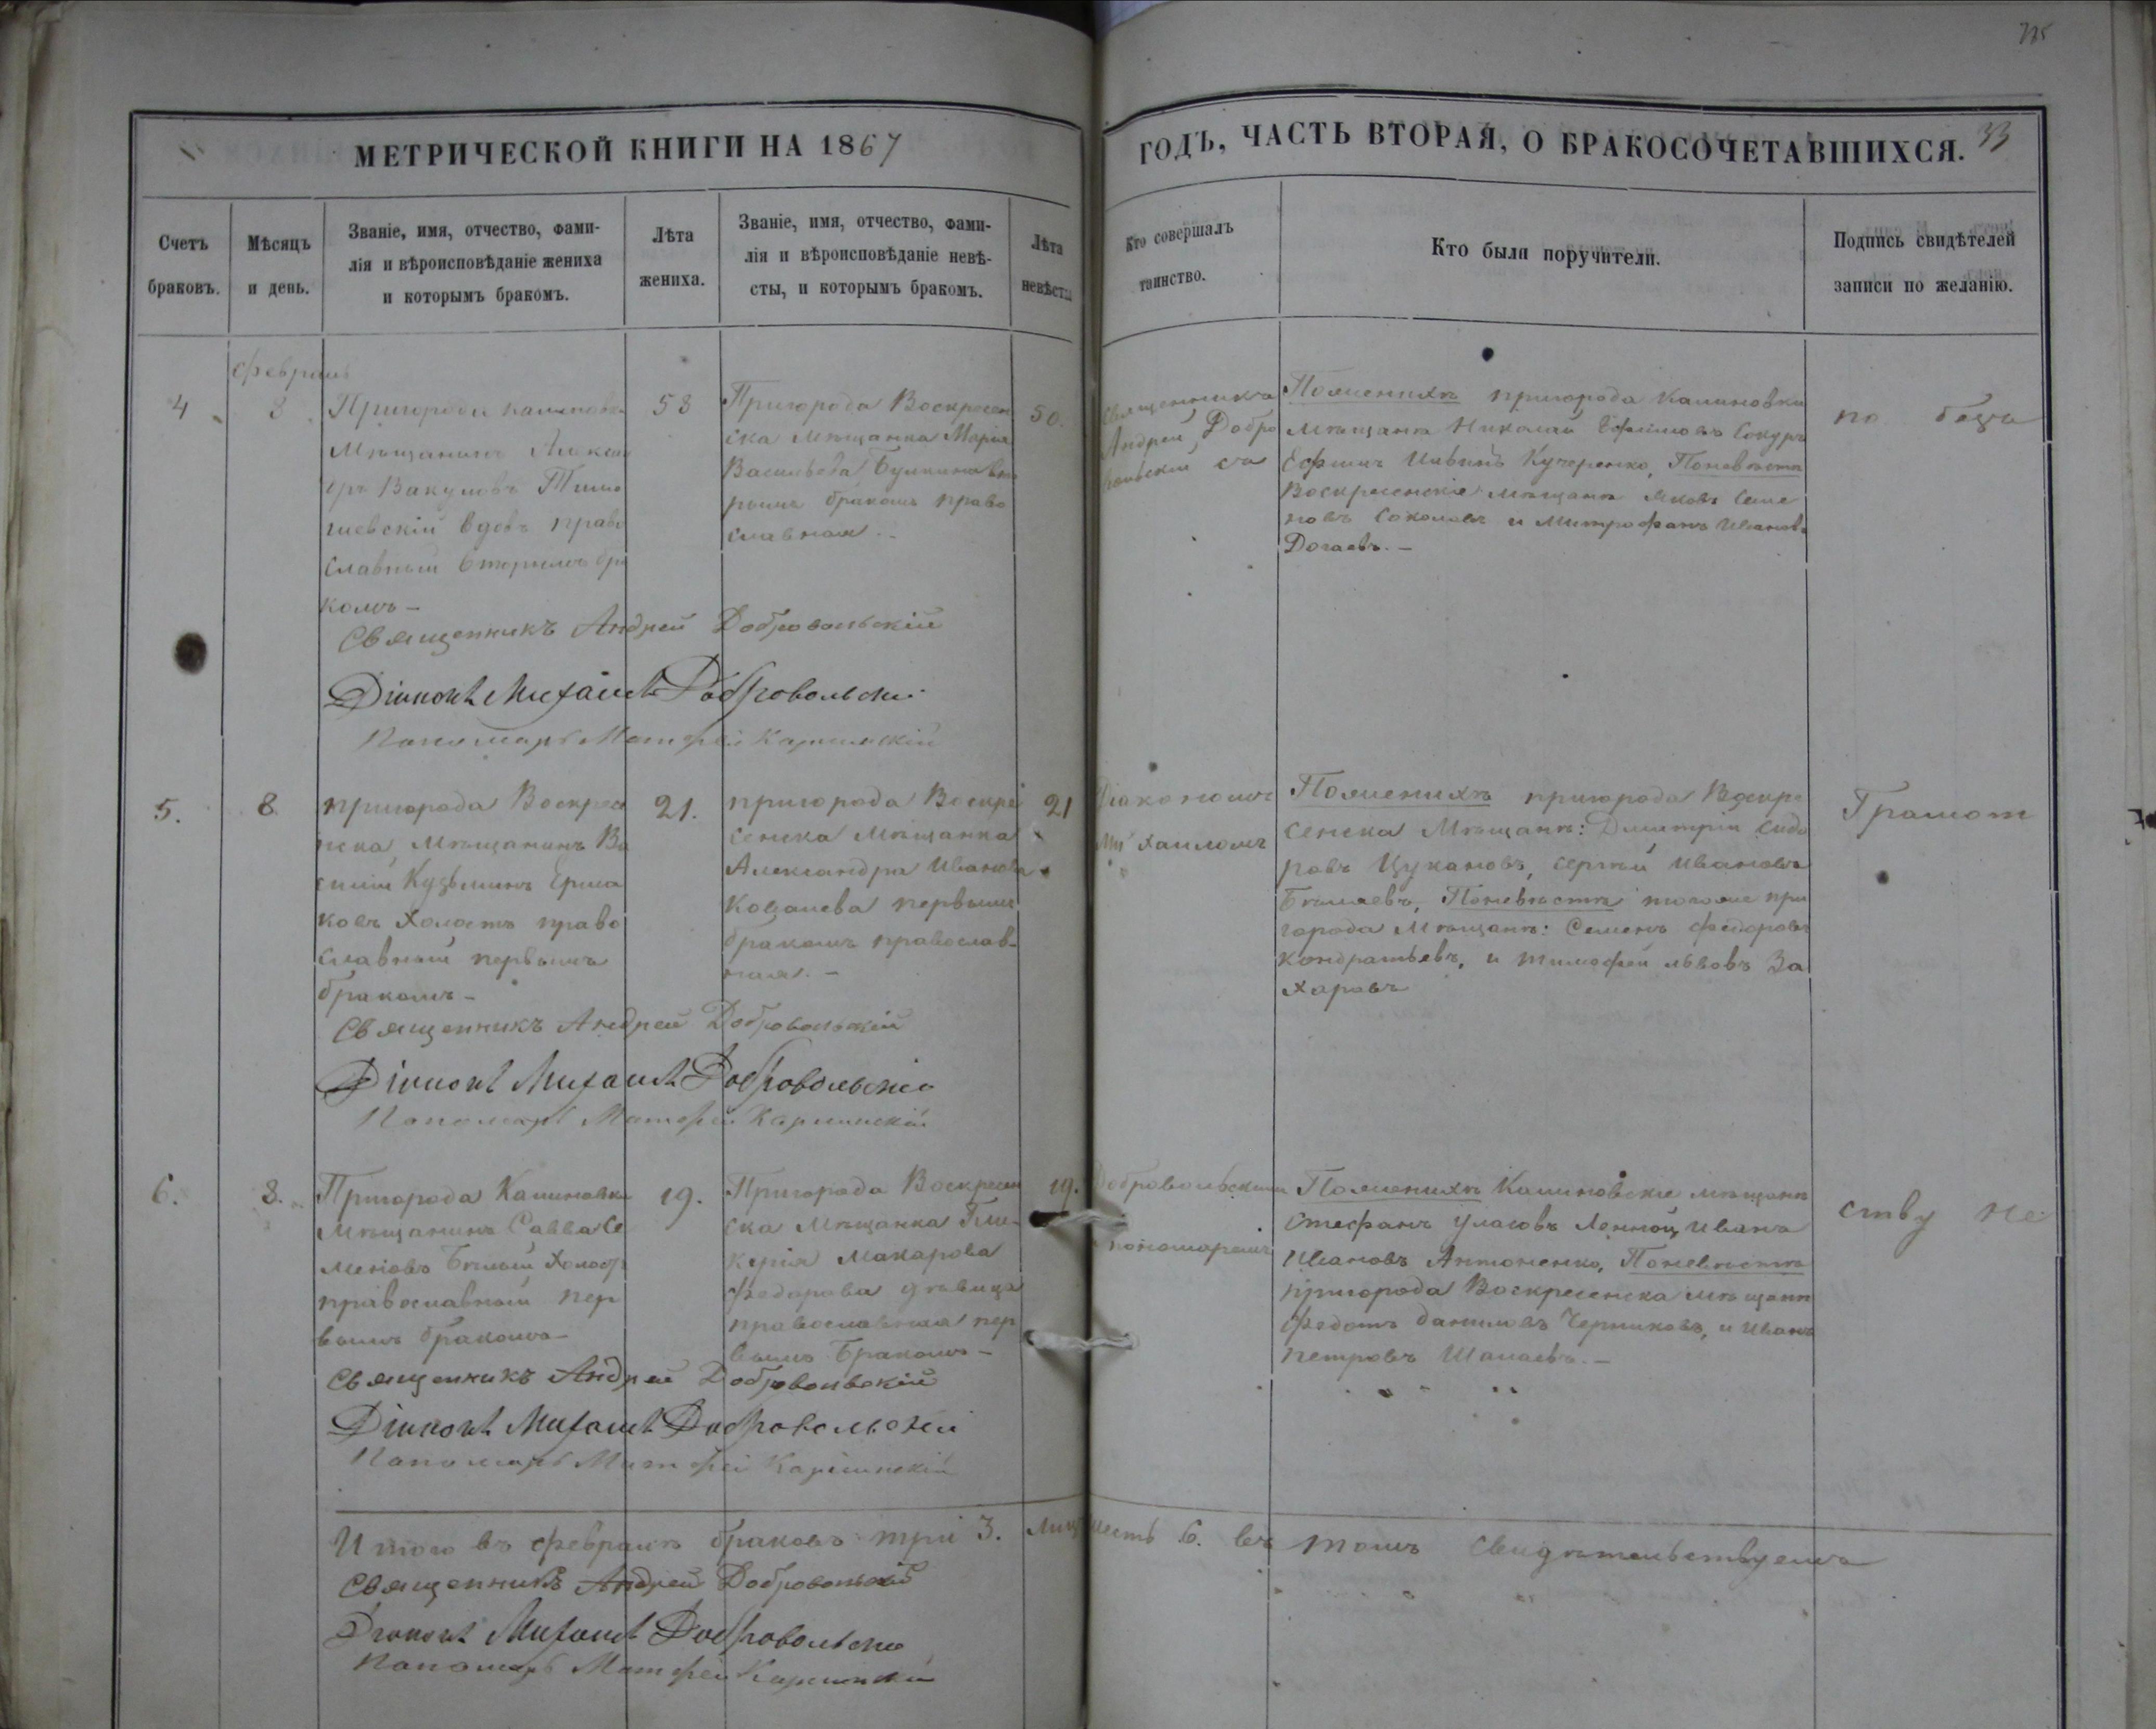 335
МЕТРИЧЕСКОЙ КНИГИ НА 1867
ГОДЪ, ЧАСТЬ ВТОРАЯ, О БРАКОСОЧЕТАВШИХСЯ. 33
Счетъ
браковъ.
Мѣсяцъ
и день.
Званіе, имя, отчество, фами-
лія и вѣроисповѣданіе жениха
и которымъ бракомъ.
Лѣта
жениха.
Званіе, имя, отчество, фами-
лія и вѣроисповѣданіе невѣ-
сты, и которымъ бракомъ.
Лѣта
невѣсты
Кто совершалъ
таинство.
Кто были поручители.
Подпись свидѣтелей
записи по желанію.
февраль
4
8
Пригорода Калиновки
Мѣщанинъ Алексан
дръ Вакуловъ
вдовъ право
славный вторымъ бра
комъ –
53
Пригорода Воскресен
ска Мѣщанка Марія
Васильева вто
рымъ бракомъ право
славная. –
50.
Священникъ
Андрей Добро
вольскій съ
Поженихѣ пригорода Калиновки
мѣщане Николай Ефимовъ
Ефимъ Кучеренко, Поневѣстѣ
Воскресенскіе мѣщане Яковъ Семе
новъ Соколовъ и Митрофанъ Ивановъ
Догаевъ. –
по безъ
Священникъ Андрей Добровольскій
Діаконъ Михаилъ Добровольскій
Пономарь Матфей
5.
8
пригорода Воскресе
нска мѣщанинъ Ва
силій Кузьминъ Ерма
ковъ холостъ право
славный первымъ
бракомъ –
21.
пригорода Воскре
сенска Мѣщанка
Александра Иванова
первымъ
бракомъ православ-
ная. –
21
Діакономъ
Михаиломъ
Поженихѣ пригорода Воскре
сенска Мѣщане: Димитрій Сидо
ровъ Цукановъ, Сергѣй Ивановъ
Бѣляевъ, Поневѣстѣ тогоже при
города Мѣщане: Семенъ Федоровъ
Кондратьевъ, и Тимофей Львовъ За
харовъ
Грамот
Священникъ Андрей Добровольскій
Діаконъ Михаилъ Добровольскій
Пономарь Матфей
6.
8.
Пригорода Калиновки
Мѣщанинъ Савва Се
меновъ Бѣлый Холостъ
православный пер
вымъ бракомъ –
19.
Пригорода Воскресен
ска Мѣщанка Гли-
керія Макарова
Федорова дѣвица
православная пер
вымъ Бракомъ –
19.
Добровольскимъ
пономаремъ
Поженихѣ Калиновскіе мѣщане
Стефанъ Иванъ
Ивановъ Антоненко, Поневѣстѣ
пригорода Воскресенска мѣщане
Федотъ Даниловъ Черниковъ, и Иванъ
Петровъ Шалаевъ. –
ству не
Священникъ Андрей Добровольскій
Діаконъ Михаилъ Добровольскій
Пономарь Матфей
Итого въ февралѣ браковъ три 3. лицъ шесть 6. въ томъ свидѣтельствуемъ
Священникъ Андрей Добровольскій
Діаконъ Михаилъ Добровольскій
Пономарь Матфей